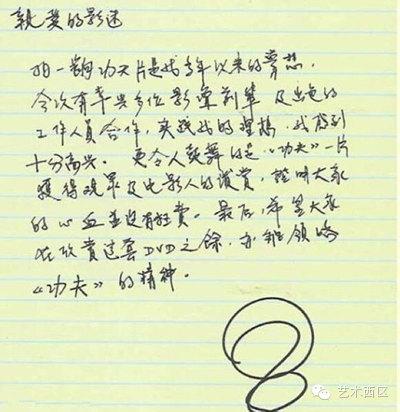 親愛的影迷
拍一齣功夫片是我多年以來的夢想，
今次有幸與多位影壇前輩及出色的
工作人員合作，實踐我的理想，我感到
十分高興。更令人鼓舞的是《功夫》一片
獲得觀眾及电影人的讚賞，證明大家
的心血並沒有白費。最后，希望大家
在欣賞這套DVD之餘，亦能領略
《功夫》的精神。
艺术西区